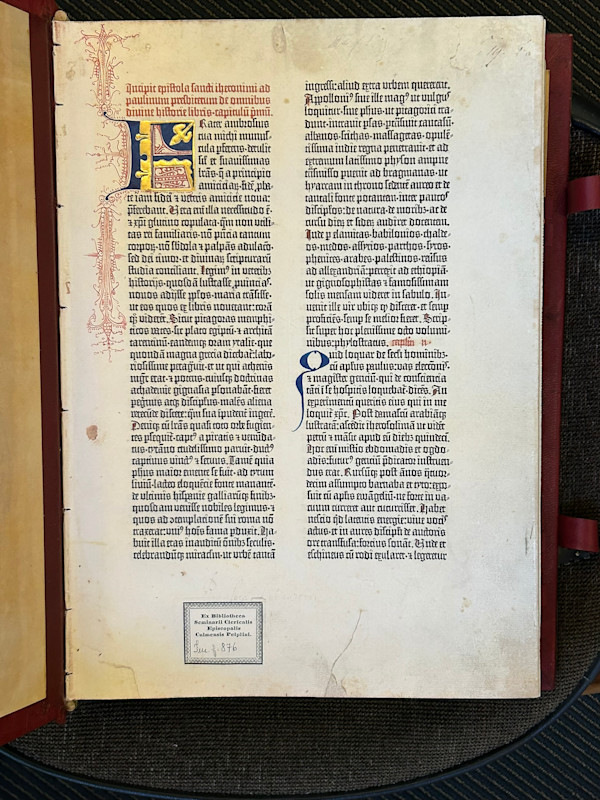 Incipit epistola sancti iheronimi ad
paulinum presbiterum de omnibus
divine historie libris · capitulum pmū ·
Frater ambrosius
tua michi munus-
cula pferens · detulit
sil' et suavissimas
lr̄as · q̄ a principio
amiciciaꝝ · fidē p̱ba-
te iam fidei ⁊ veteris amicicie nova:
p̱ferebant. Vera enī illa necessitudo ē ·
⁊ xp̄i glutino copulata · qm̄ non utili-
tas rei familiaris · nō pn̄cia tantum
corpoꝝ · nō sb̄dola ⁊ palpās adulacō ·
sed dei timor · et divinaꝝ scripturarū
studia conciliant. Legimꝰ in veteribꝫ
historijs · quosdā lustrasse p̱vincias ·
novos adijsse pp̱los · maria trāsisse ·
ut eos quos ex libris noverant: corā
qꝫ viderēt. Sicut pitagoras memphi-
ticos vates · sic plato egiptū · ⁊ architā
tarentinū · eandemqꝫ oram ytalie · que
quondā magna grecia dicebat̄: labo-
riosissime peragravit · et ut qui athenis
mgr̄ erat · ⁊ potens · cuiusqꝫ doctrinas
achademie gignasia p̱sonabāt · fieret
pegrinꝰ atqꝫ discipulus · malēs aliena
verecūde discere: qm̄ sua īpudent̄ ingere.
Deniqꝫ cū lr̄as quasi toto orbe fugien-
tes p̱sequit̄ · captꝰ a piratis ⁊ venūda-
tus · tyrāno crudelissimo paruit · ductꝰ
captivus vinctꝰ ⁊ servus. Tamē quia
ph̄us maior emente se fuit · ad tytum
liviū · lacteo eloquētie fonte manantē ·
de ultimis hispanie galliarūqꝫ finibꝫ ·
quosdam venisse nobiles legimus · ⁊
quos ad ɔtemplacionē sui roma nō
traxerat: uniꝰ hoīs fama p̱duxit. Ha-
buit illa etas inauditū oībꝫ seculis ·
celebrandūqꝫ miraculū · ut urbē tantā
ingressi: aliud extra urbem quererent.
Appolloniꝰ sive ille magꝰ ut vulgus
loquitur · sive ph̄us · ut pitagorici tra-
dunt · intravit p̱sas · p̱transivit caucasū ·
albanos · scithas · massagetas · opulē-
tissima indie regna penetravit · et ad
extremum latissimo physon ampne
trāsmisso p̱venit ad bragmanas · ut
hyarcam in throno sedentē aureo et de
tantali fonte potantem · inter paucos
discipulos · de natura · de moribꝫ · ac de
cursu dieꝝ et sideꝝ audiret docentem.
Inde p̱ elamitas · babilonios · chalde-
os · medos · assyrios · parthos · syros ·
phenices · arabes · palestinos · reversus
ad allexandriā: p̱rexit ad ethiopiā ·
ut gignosophistas ⁊ famosissimam
solis mensam videret in sabulo. In-
venit ille vir ubiqꝫ qd̄ disceret · et semp̱
proficiēs · semp̱ se melior fieret. Scrip-
sit super hoc plenissime octo volumi-
nibus: phylostratus. capl'm ii ·
Quid loquar de sec̄li hominibꝫ ·
cū apl'us paulus: vas electōnis ·
⁊ magister genciū · qui de conscientia
tāti ī se hospitis loquebat̄ · dicēs. An
experimentū queritis eius qui in me
loquitur xp̄c. Post damascū arabiāqꝫ
lustratā: ascēdit iherosolimā ut videt̄
petrū ⁊ māsit apud eū diebꝫ quindeci.
Hoc enī misterio ebdomadis et ogdo-
adis: futurꝰ genciū p̱dicator instruen-
dus erat. Rursūqꝫ post ānos q̄tuor-
decim assumpto barnaba et tyto: expo-
suit cū apl'is ewāgeliū · ne forte in va-
cuum curreret aut cucurrisset. Habet
nescio qd̄ latentis energie: vive vocꝭ
actus · et in aures discip̱li de auctoris
ore transfusa: forcius sonat. Unde et
eschineus cū rodi exularet · ⁊ legeretur
Ex Bibliotheca
Seminarii Clericalis
Episcopalis
Culmensis Pelplini.
876